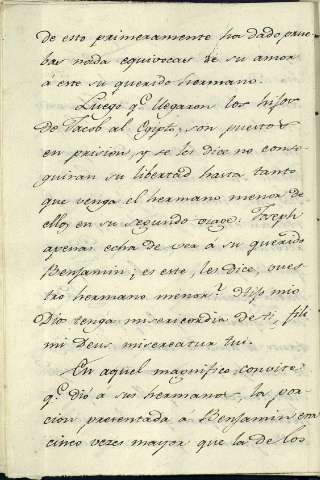 de esto primeramente ha dado prue
bas nada equivocas de su amor
á este su querido hermano.
Luego q.e llegaron los hijos
de Jacob al Egipto, son puestos
en prision, y se les dice no conse-
guiran su libertad hasta tanto
que venga el hermano menor de
ellos, en su segundo viage: Joseph
apenas echa de ver a su querido
Benjamin; es este, les dice, vues
tro hermano menor? Hijo mio
Dios tenga misericordia de ti, fili
mi Deus misereatur tui.
En aquel magnifico convite
q.e dió a sus hermanos, la por-
cion presentada á Benjamin era
cinco vezes mayor que la de los